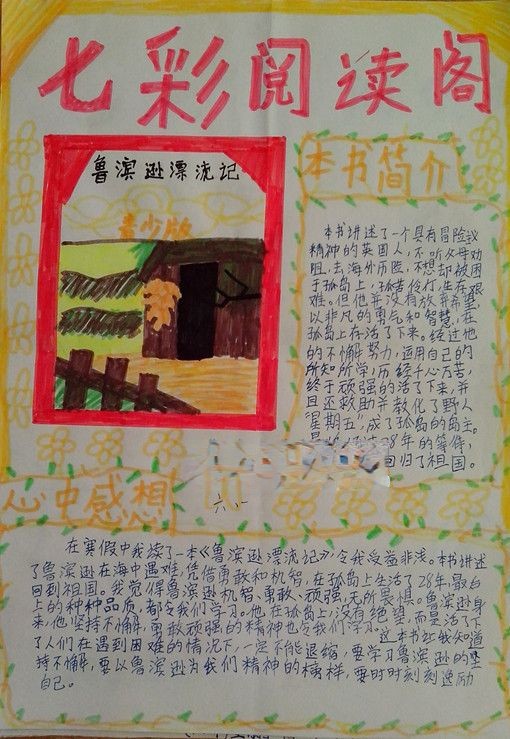 七彩阅读阁
鲁滨逊漂流记
青少版
本书简介
本书讲述了一个具有冒险
精神的英国人,不听父母劝
阻,去海外历险,不想却被困
于孤岛上,孤苦伶仃,生存艰
难。但他并没有放弃希望,
以非凡的勇气和智慧,在
孤岛上存活了下来。经过他
的不懈努力,运用自己的
所知所学,历经千心万苦,
终于顽强的活了下来,并
且还救助并教化了野人
“星期五”,成了孤岛的岛主。
28年的等侍,
回归了祖国。
心中感想
六、
在寒假中我读了一本《鲁滨逊漂流记》,令我受益非浅。本书讲述
了鲁滨逊在海中遇难,凭借勇敢和机智,在孤岛上生活了28年,最后
回到祖国。我觉得鲁滨逊机智、勇敢、顽强,无所畏惧。鲁滨逊身
上的种种品质,都令我们学习。他在孤岛上没有绝望,而是活了下
来,他坚持不懈,勇敢顽强的精神也令我们学习。这本书让我知道
了人们在遇到困难的情况下,一定不能退缩,要学习鲁滨逊的坚
持不懈,要以鲁滨逊为我们精神的榜样,要时时刻刻激励
自己。